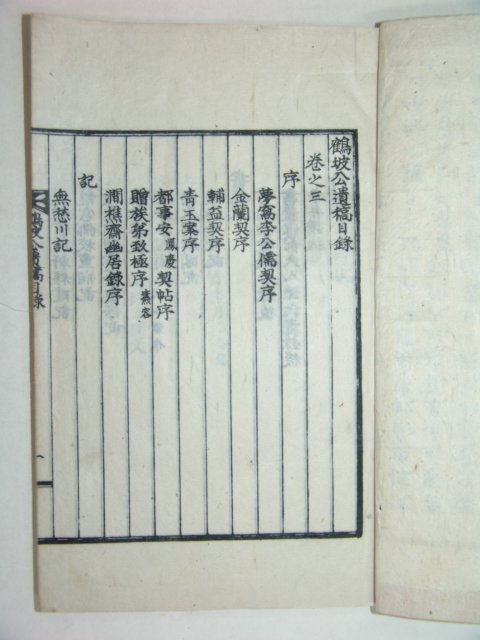 鶴坡公遺稿目錄
卷之三
序
夢窩李公儒契序
金蘭契序
輔益契序
靑玉案序
都事安鳳慶契帖序
贈族弟致極序
澗樵齋幽居錄序
記
無愁川記
鶴坡公遺稿目錄
一